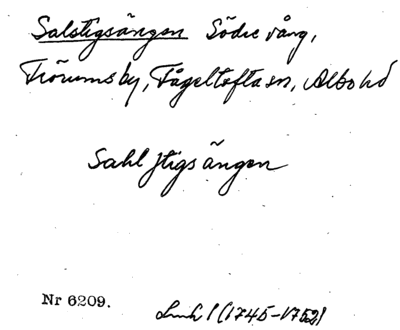 Salstigsängen Södre vång,
Frörumsby, Fågeltofta sn, Albo hd
Sahl stigs ängen
Nr 6209.
Lmh 1 (1745-1752)